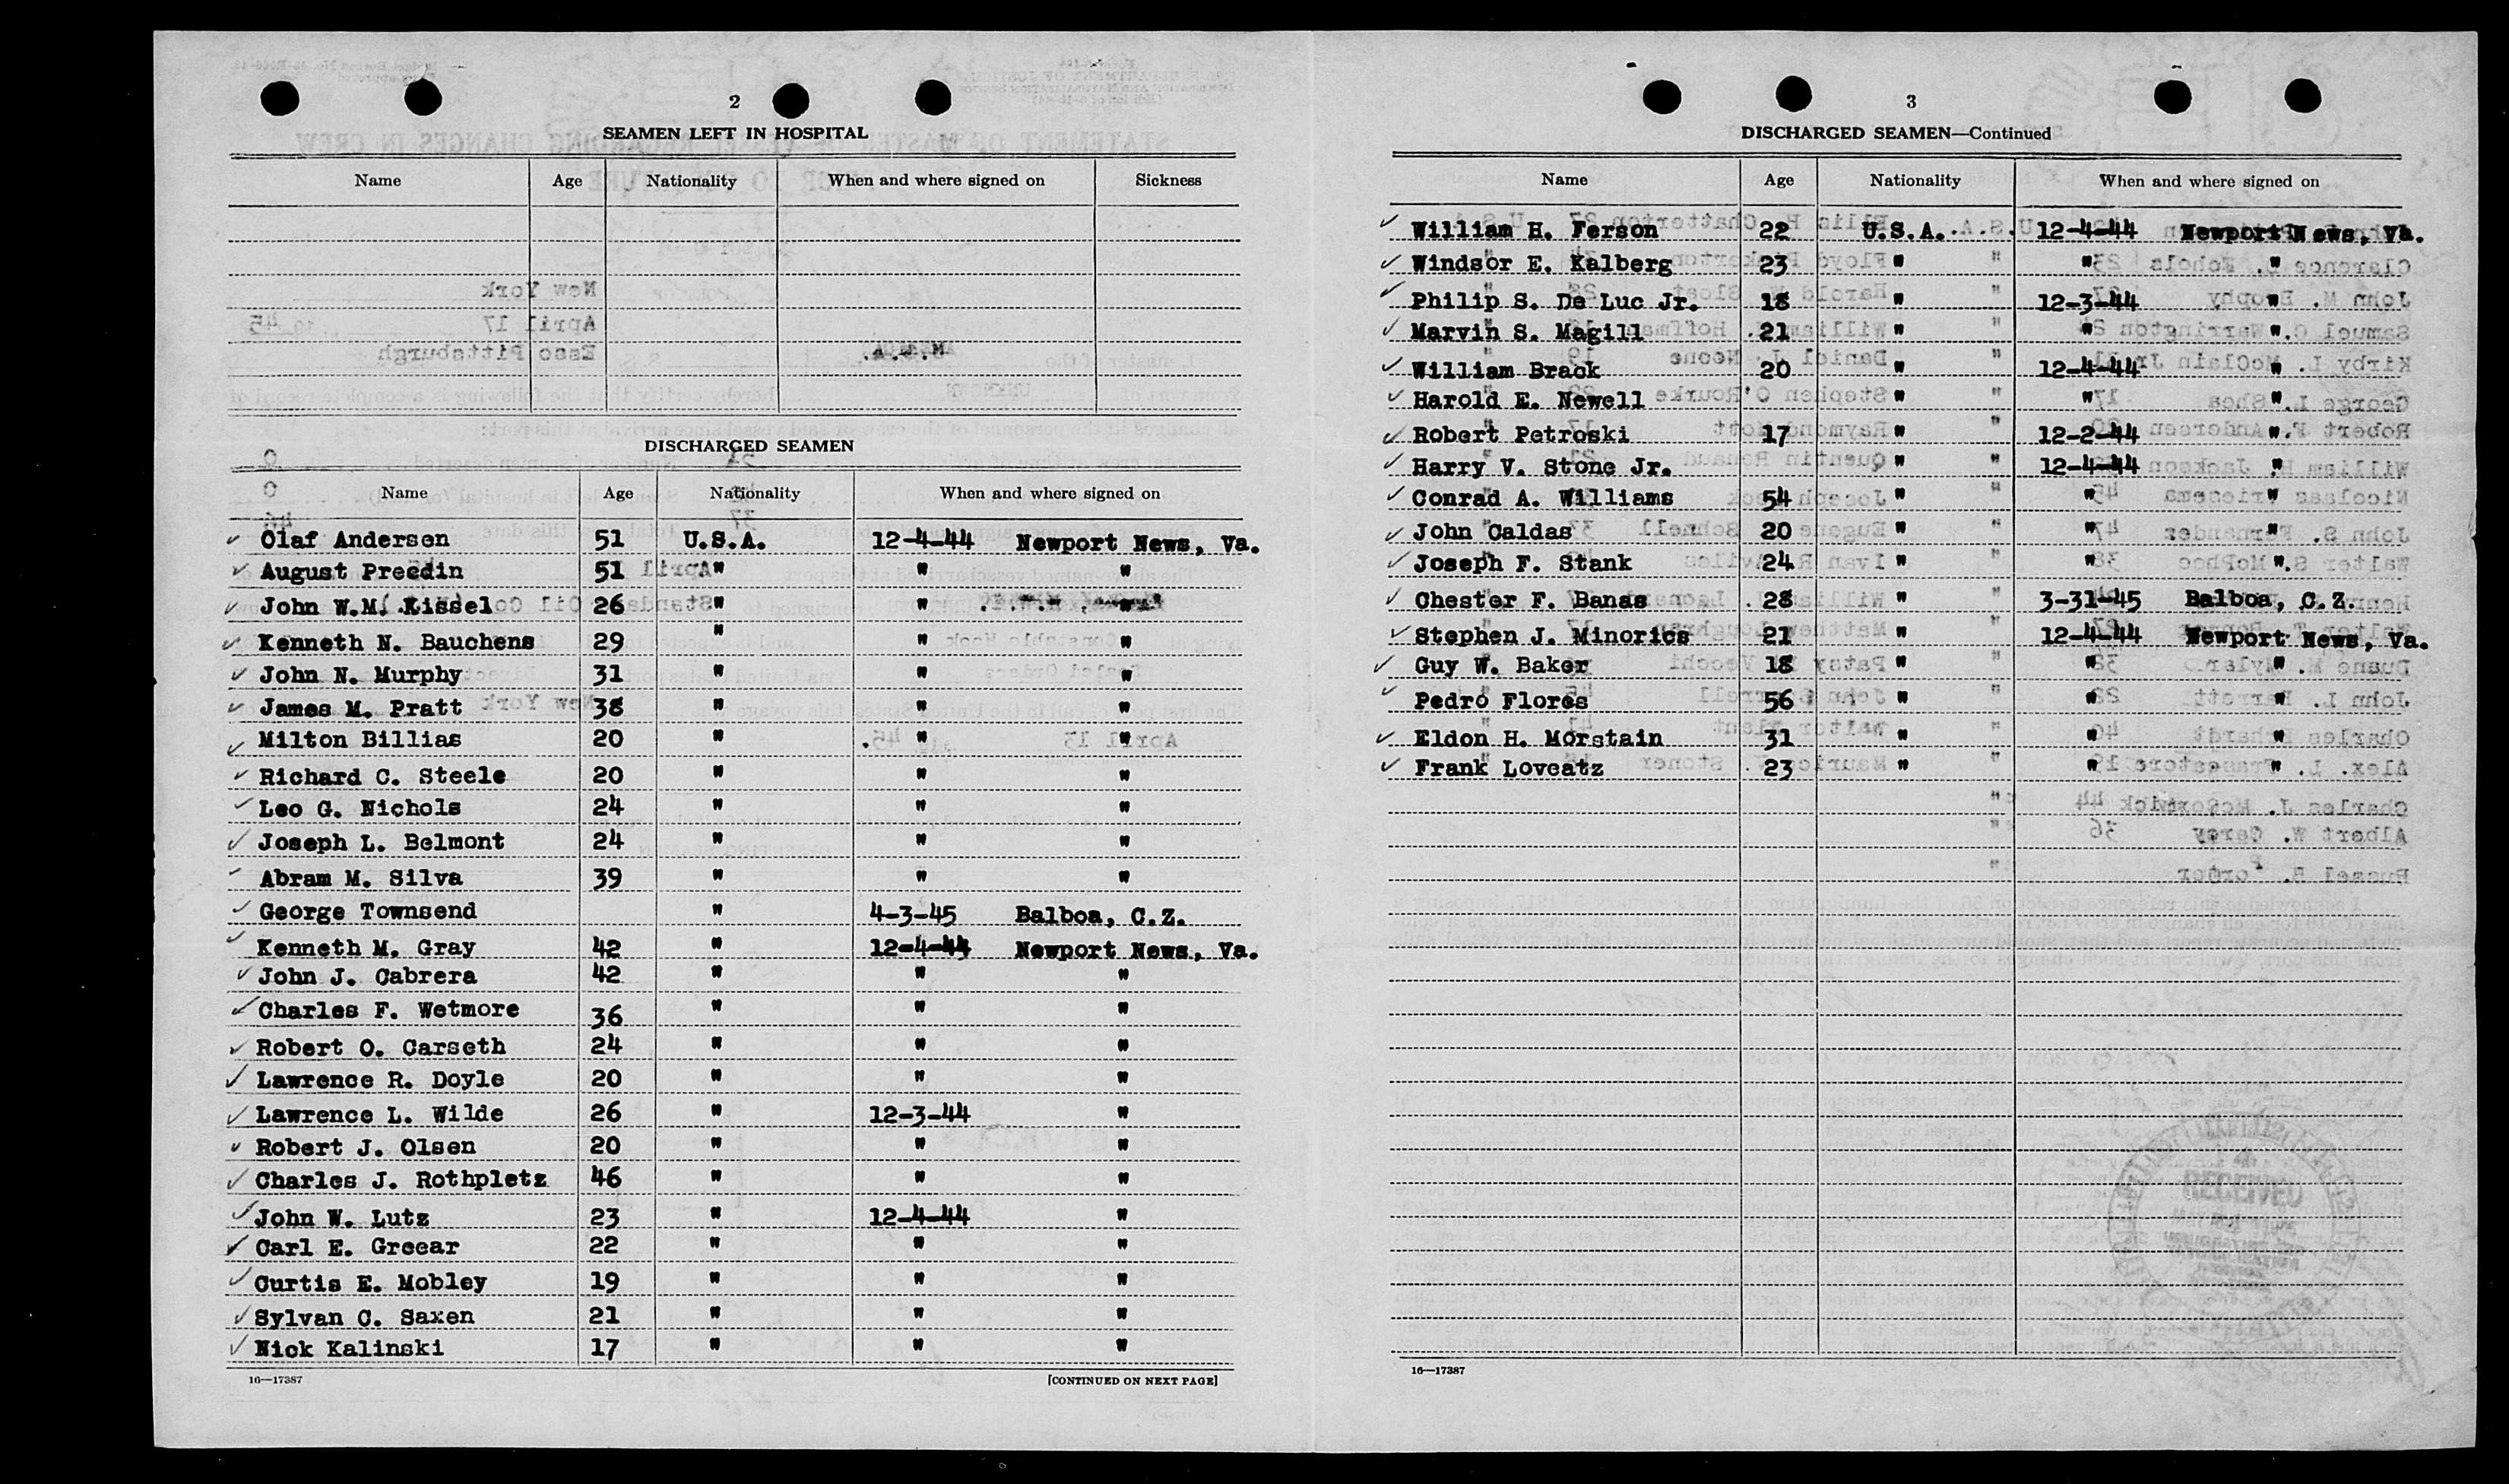 2
SEAMEN LEFT IN HOSPITAL
Name Age Nationality When and where signed on Sickness
DISCHARGED SEAMEN
Name Age Nationality When and where signed on
Olaf Andersen 51 U.S.A. 12-4-44 Newport News, Va.
August Preedin 51 " " "
John W.M. Kissel 26 " " "
Kenneth N. Bauchens 29 " " "
John N. Murphy 31 " " "
James M. Pratt 38 " " "
Milton Billias 20 " " "
Richard C. Steele 20 " " "
Leo G. Nichols 24 " " "
Joseph L. Belmont 24 " " "
Abram M. Silva 39 " " "
George Townsend " 4-3-45 Balboa, C.Z.
Kenneth M. Gray 42 " 12-4-44 Newport News, Va.
John J. Cabrera 42 " " "
Charles F. Wetmore 36 " " "
Robert O. Carseth 24 " " "
Lawrence R. Doyle 20 " " "
Lawrence L. Wilde 26 " 12-3-44 "
Robert J. Olsen 20 " " "
Charles J. Rothpletz 46 " " "
John W. Lutz 23 " 12-4-44 "
Carl E. Greear 22 " " "
Curtis E. Mobley 19 " " "
Sylvan C. Saxen 21 " " "
Nick Kalinski 17 " " "
16—17387 [CONTINUED ON NEXT PAGE]
3
DISCHARGED SEAMEN—Continued
Name Age Nationality When and where signed on
William H. Ferson 22 U.S.A. 12-4-44 Newport News, Va.
Windsor E. Kalberg 23 " " "
Philip S. De Luc Jr. 18 " 12-3-44 "
Marvin S. Magill 21 " " "
William Brack 20 " 12-4-44 "
Harold E. Newell " " "
Robert Petroski 17 " 12-2-44 "
Harry V. Stone Jr. " 12-4-44 "
Conrad A. Williams 54 " " "
John Caldas 20 " " "
Joseph F. Stank 24 " " "
Chester F. Banas 28 " 3-31-45 Balboa, C.Z.
Stephen J. Minorics 21 " 12-4-44 Newport News, Va.
Guy W. Baker 18 " " "
Pedro Flores 56 " " "
Eldon H. Morstain 31 " " "
Frank Loveatz 23 " " "
16—17387